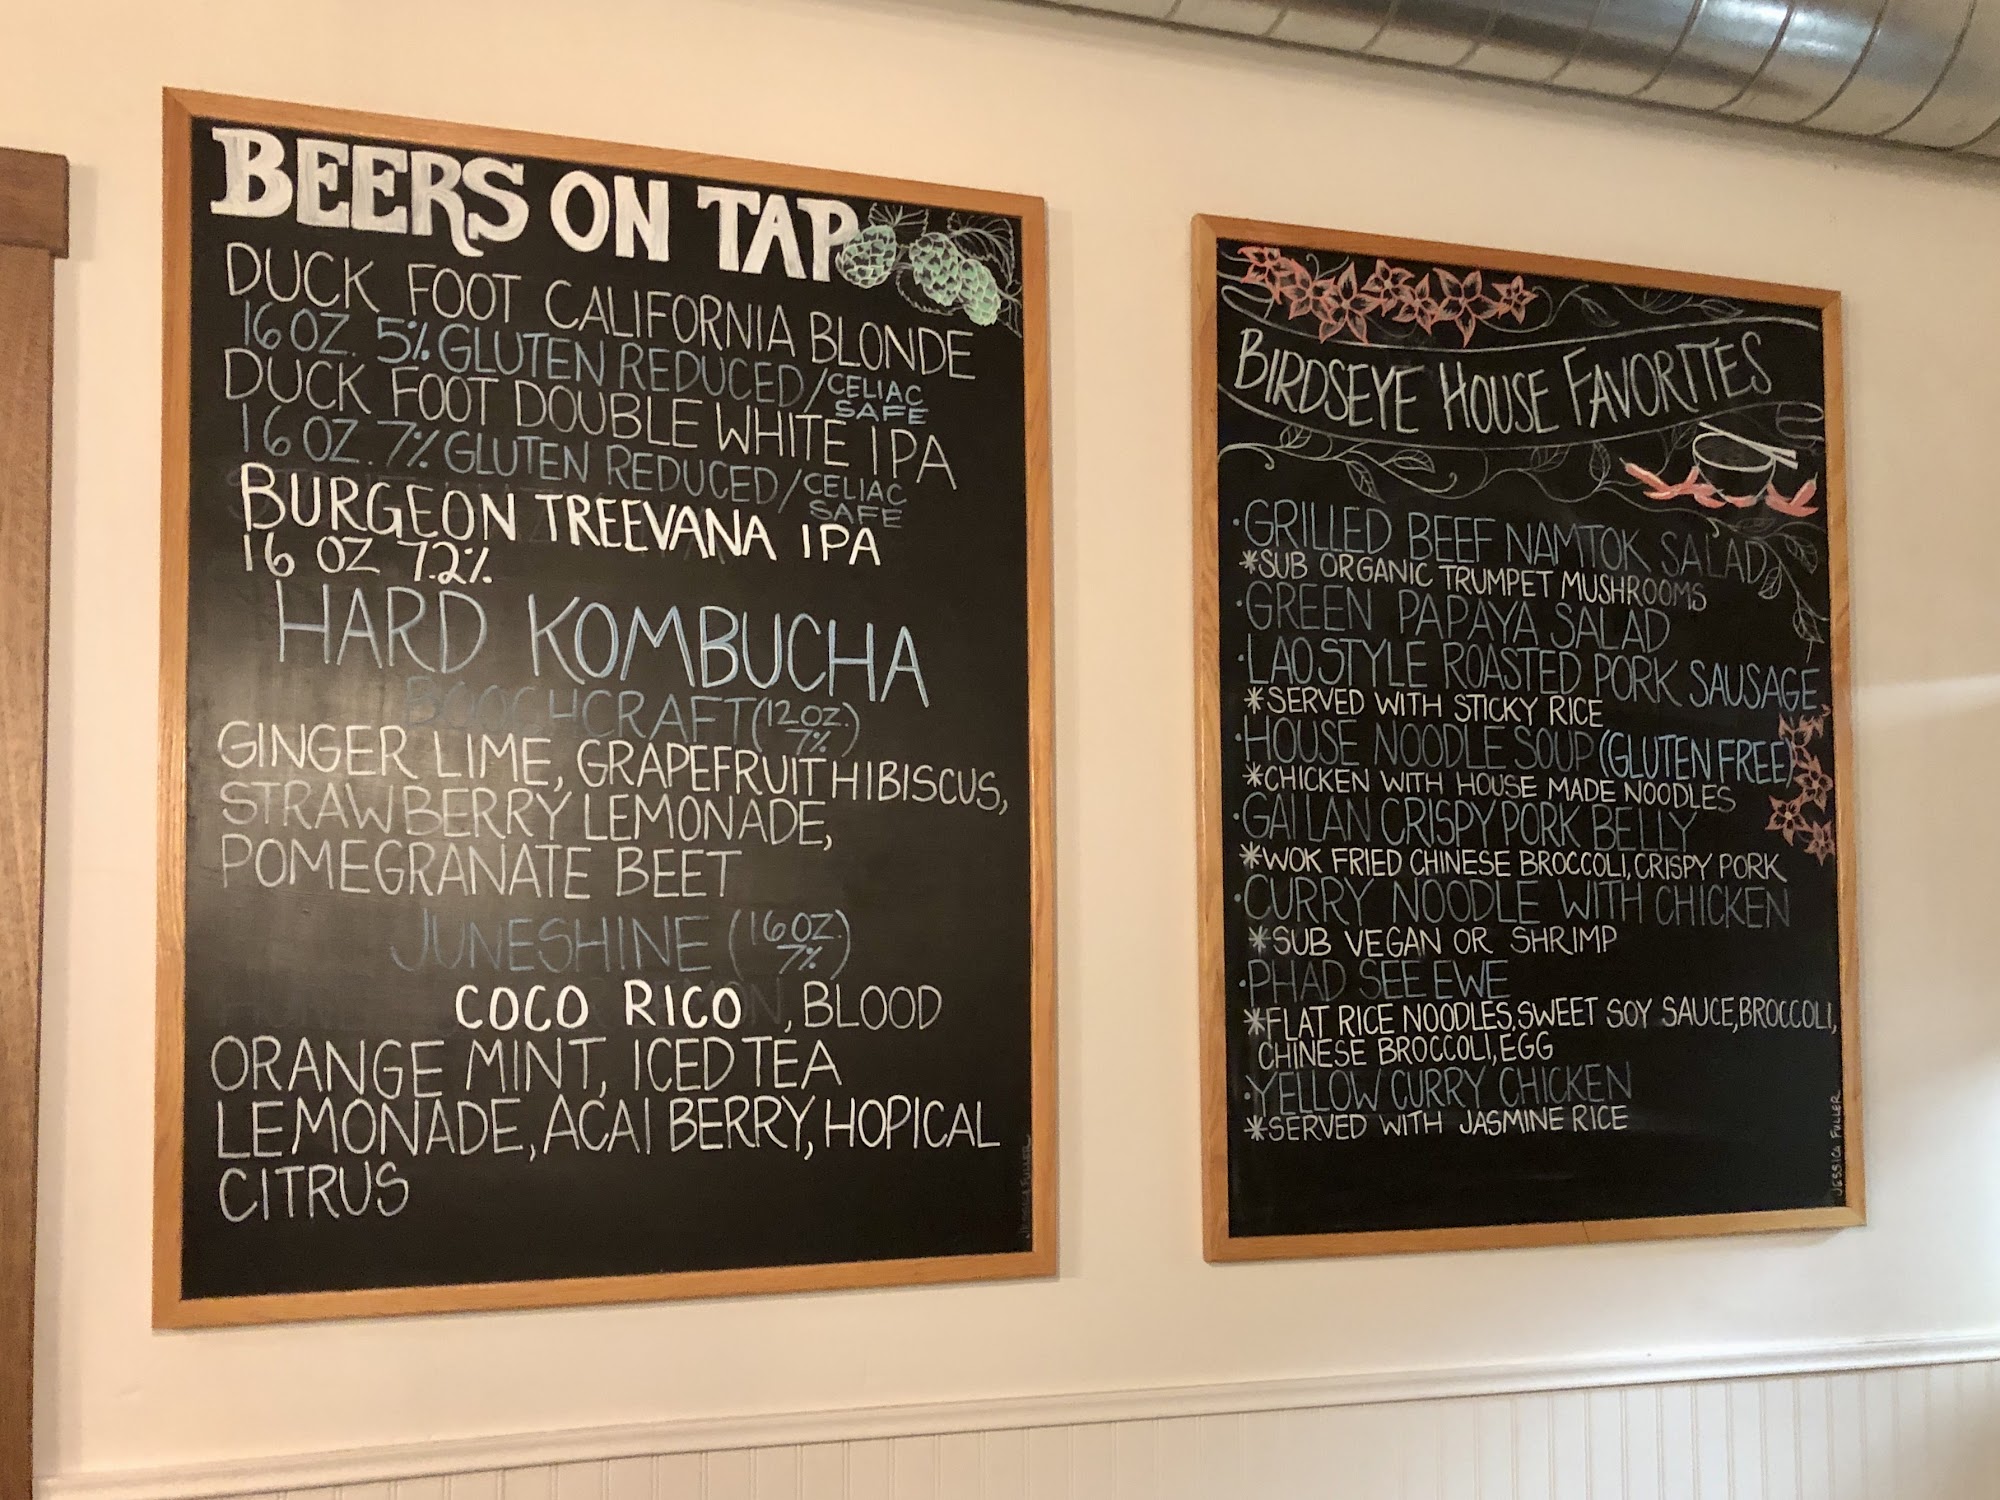 BEERS ON TAP
DUCK FOOT CALIFORNIA BLONDE
16 OZ. 5% GLUTEN REDUCED/CELIAC SAFE
DUCK FOOT DOUBLE WHITE IPA
16 OZ. 7% GLUTEN REDUCED/CELIAC SAFE
BURGEON TREEVANA IPA
16 OZ 7.2%
HARD KOMBUCHA
BOOCHCRAFT (12 OZ. 7%)
GINGER LIME, GRAPEFRUIT HIBISCUS,
STRAWBERRY LEMONADE,
POMEGRANATE BEET
JUNESHINE (16 OZ. 7%)
COCO RICO, BLOOD
ORANGE MINT, ICED TEA
LEMONADE, ACAI BERRY, HOPICAL
CITRUS
JESSICA FULLER
BIRDSEYE HOUSE FAVORITES
·GRILLED BEEF NAMTOK SALAD
*SUB ORGANIC TRUMPET MUSHROOMS
·GREEN PAPAYA SALAD
·LAO STYLE ROASTED PORK SAUSAGE
*SERVED WITH STICKY RICE
·HOUSE NOODLE SOUP (GLUTEN FREE)
*CHICKEN WITH HOUSE MADE NOODLES
·GAI LAN CRISPY PORK BELLY
*WOK FRIED CHINESE BROCCOLI, CRISPY PORK
·CURRY NOODLE WITH CHICKEN
*SUB VEGAN OR SHRIMP
·PHAD SEE EWE
*FLAT RICE NOODLES, SWEET SOY SAUCE, BROCCOLI,
CHINESE BROCCOLI, EGG
·YELLOW CURRY CHICKEN
*SERVED WITH JASMINE RICE
JESSICA FULLER